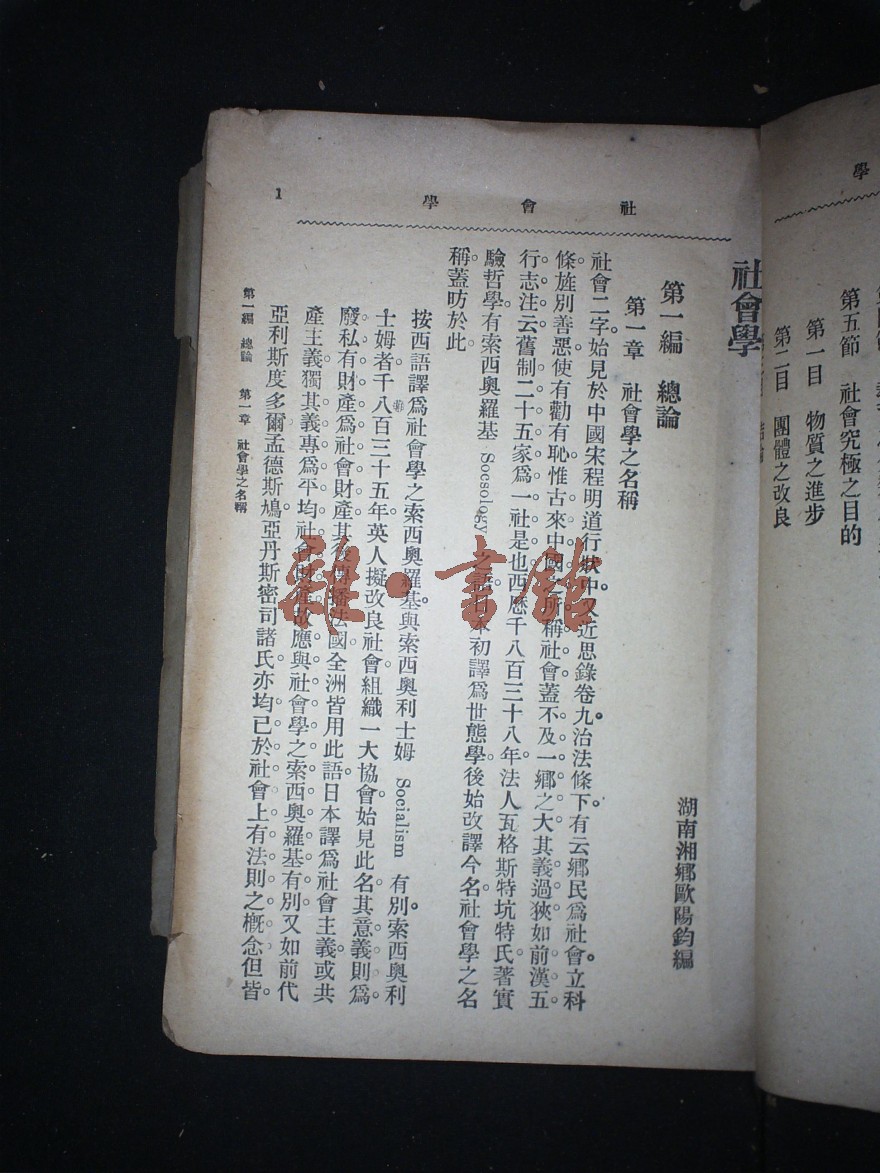 學
第五節　社會究極之目的
第一目　物質之進步
第二目　團體之改良
社會學
1
社會學
湖南湘鄉歐陽鈞編
第一編　總論
第一章　社會學之名稱
社會二字始見於中國宋程明道行狀中。又近思錄卷九治法條下。有云鄉民爲社會。立科
條旌別善惡使有勸有恥惟古來中國之所稱社會蓋不及一鄉之大其義過狹如前漢五
行志注云舊制二十五家爲一社是也西歷千八百三十八年法人瓦格斯特坑特氏著實
驗哲學有索西奧羅基 Socsology 之語日本初譯爲世態學後始改譯今名社會學之名
稱蓋昉於此
按西語譯爲社會學之索西奧羅基與索西奧利士姆 Socialism 有別。索西奧利
士姆者千八百三十五年英人擬改良社會組織一大協會始見此名其意義則爲
廢私有財產爲社會財產其後傳播法國全洲皆用此語日本譯爲社會主義或共
產主義獨其義專爲平均社會財產故應與社會學之索西奧羅基有別又如前代
亞利斯度多爾孟德斯鳩亞丹斯密司諸氏亦均已於社會上有法則之概念但皆
第一編　總論　第一章　社會學之名稱
雅·書館